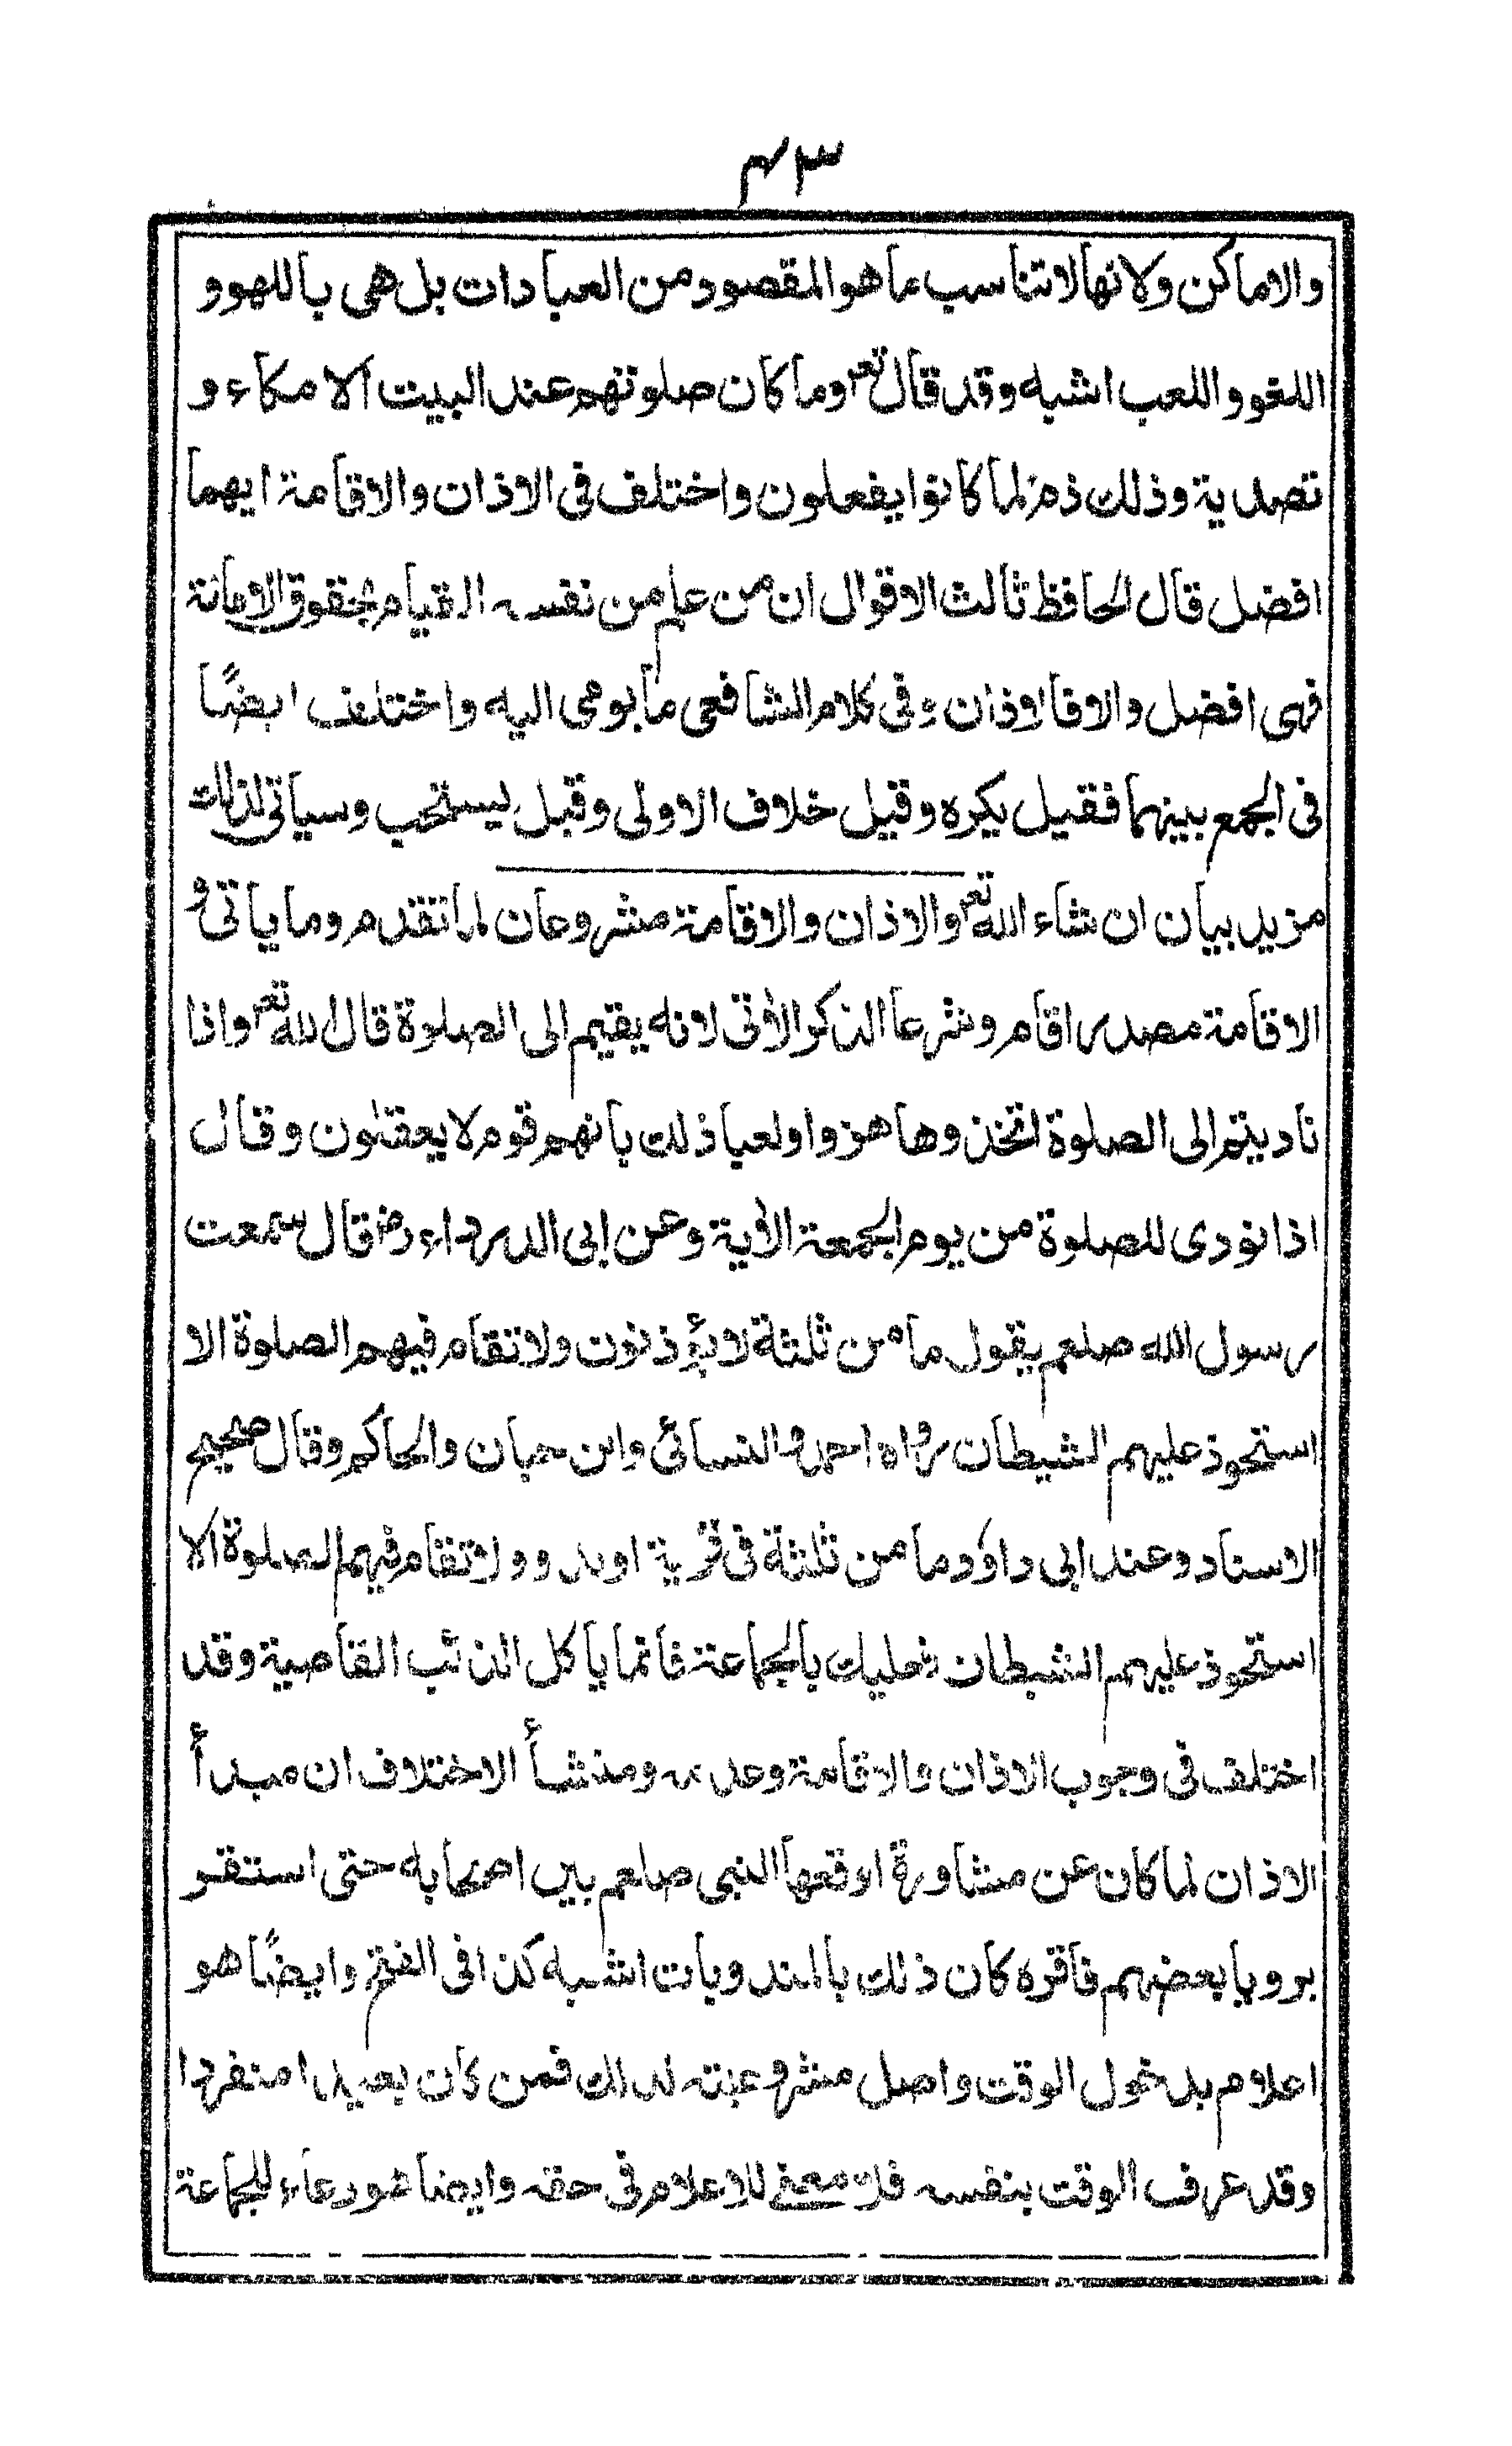 ٣٤
والاماكن ولانها لاتناسب ما هو المقصود من العبادات بل هى باللهو و
اللغو و اللعب اشبه وقد قال تعم وما كان صلوتهم عند البيت الا مكاء و
تصدية وذلك ذم لما كانوا يفعلون واختلف فى الاذان والاقامة ايهما
افضل قال الحافظ ثالث الاقوال ان من علم من نفسه القيام بحقوق الامامة
فهى افضل والا فالاذان وفى كلام الشافعى ما يومى اليه واختلف ايضًا
فى الجمع بينهما فقيل يكره وقيل خلاف الاولى وقيل يستحب وسياتى لذلك
مزيد بيان ان شاء الله تعم والاذان والاقامة مشروعان لما تقدم وما ياتى و
الاقامة مصدر اقام وشرعا الذكر الآتى لانه يقيم الى الصلوة قال الله تعم واذا
ناديتم الى الصلوة اتخذوها هزوا ولعبا ذلك بانهم قوم لا يعقلون وقال
اذا نودى للصلوة من يوم الجمعة الآية وعن ابى الدرداء رضـ قال سمعت
رسول الله صلعم يقول ما من ثلثة لا يؤذنون ولا تقام فيهم الصلوة الا
استحوذ عليهم الشيطان رواه احمد والنسائى وابن حبان والحاكم وقال صحيح
الاسناد وعند ابى داؤد ما من ثلثة فى قرية او بدو ولا تقام فيهم الصلوة الا
استحوذ عليهم الشيطان فعليك بالجماعة فانما ياكل الذئب القاصية وقد
اختلف فى وجوب الاذان والاقامة وعدمه ومنشأ الاختلاف ان مبدأ
الاذان لما كان عن مشاورة اوقعها النبى صلعم بين اصحابه حتى استقر
برويا بعضهم فاقره كان ذلك بالمندوبات اشبه كذا فى الفتح وايضًا هو
اعلام بدخول الوقت واصل مشروعيته لذلك فمن كان بعيدا منفردا
وقد عرف الوقت بنفسه فلا معنى للاعلام فى حقه وايضا هو دعاء للجماعة